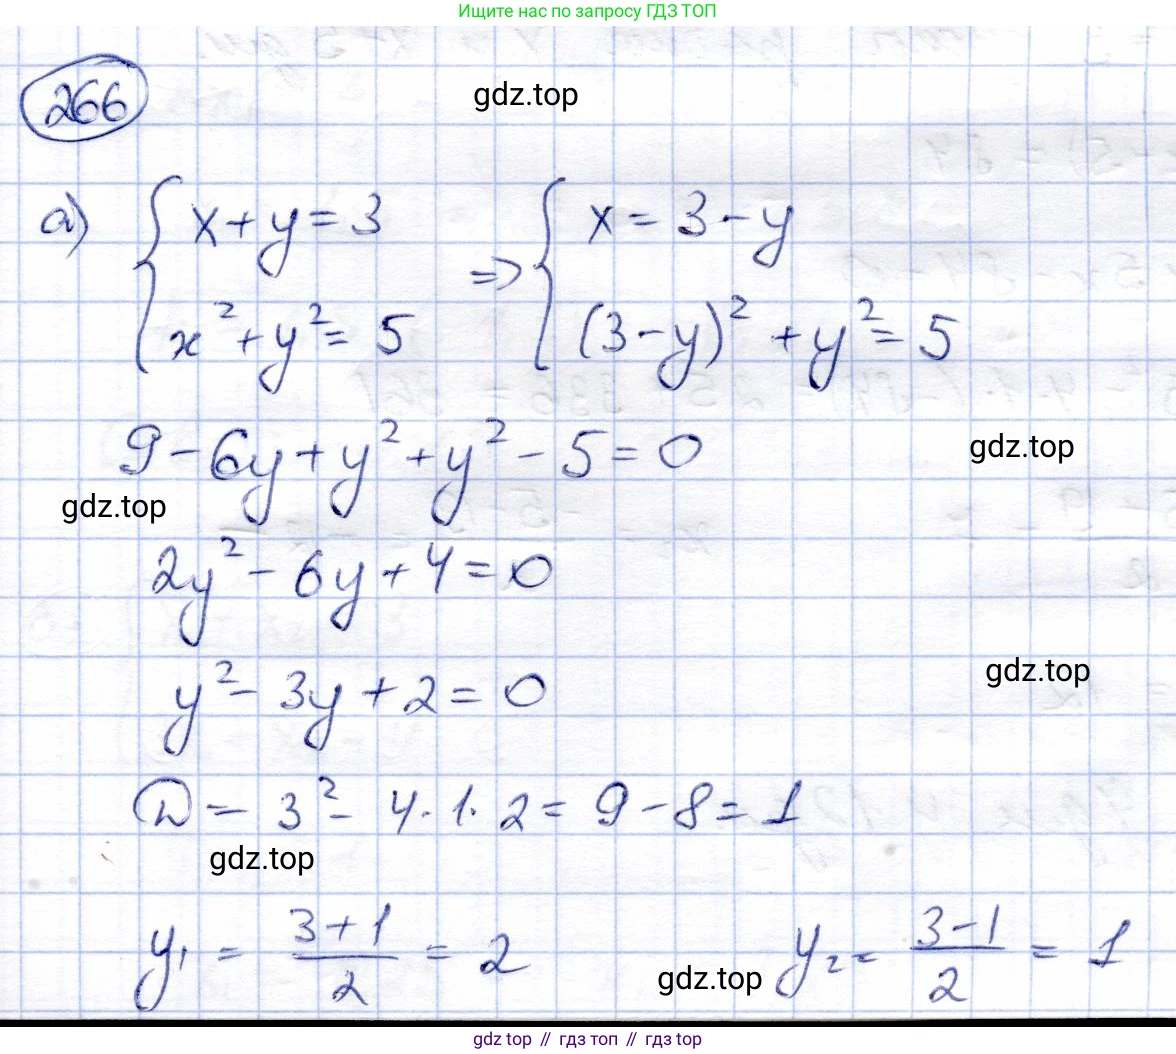 Ищите нас по запросу ГДЗ ТОП
266
gdz.top
а) { x + y = 3 => { x = 3 - y
x² + y² = 5 (3 - y)² + y² = 5
9 - 6y + y² + y² - 5 = 0
gdz.top
gdz.top
2y² - 6y + 4 = 0
gdz.top
y² - 3y + 2 = 0
D = 3² - 4 · 1 · 2 = 9 - 8 = 1
gdz.top
y₁ = (3 + 1)/2 = 2 y₂ = (3 - 1)/2 = 1
gdz.top
gdz top // гдз топ // gdz top